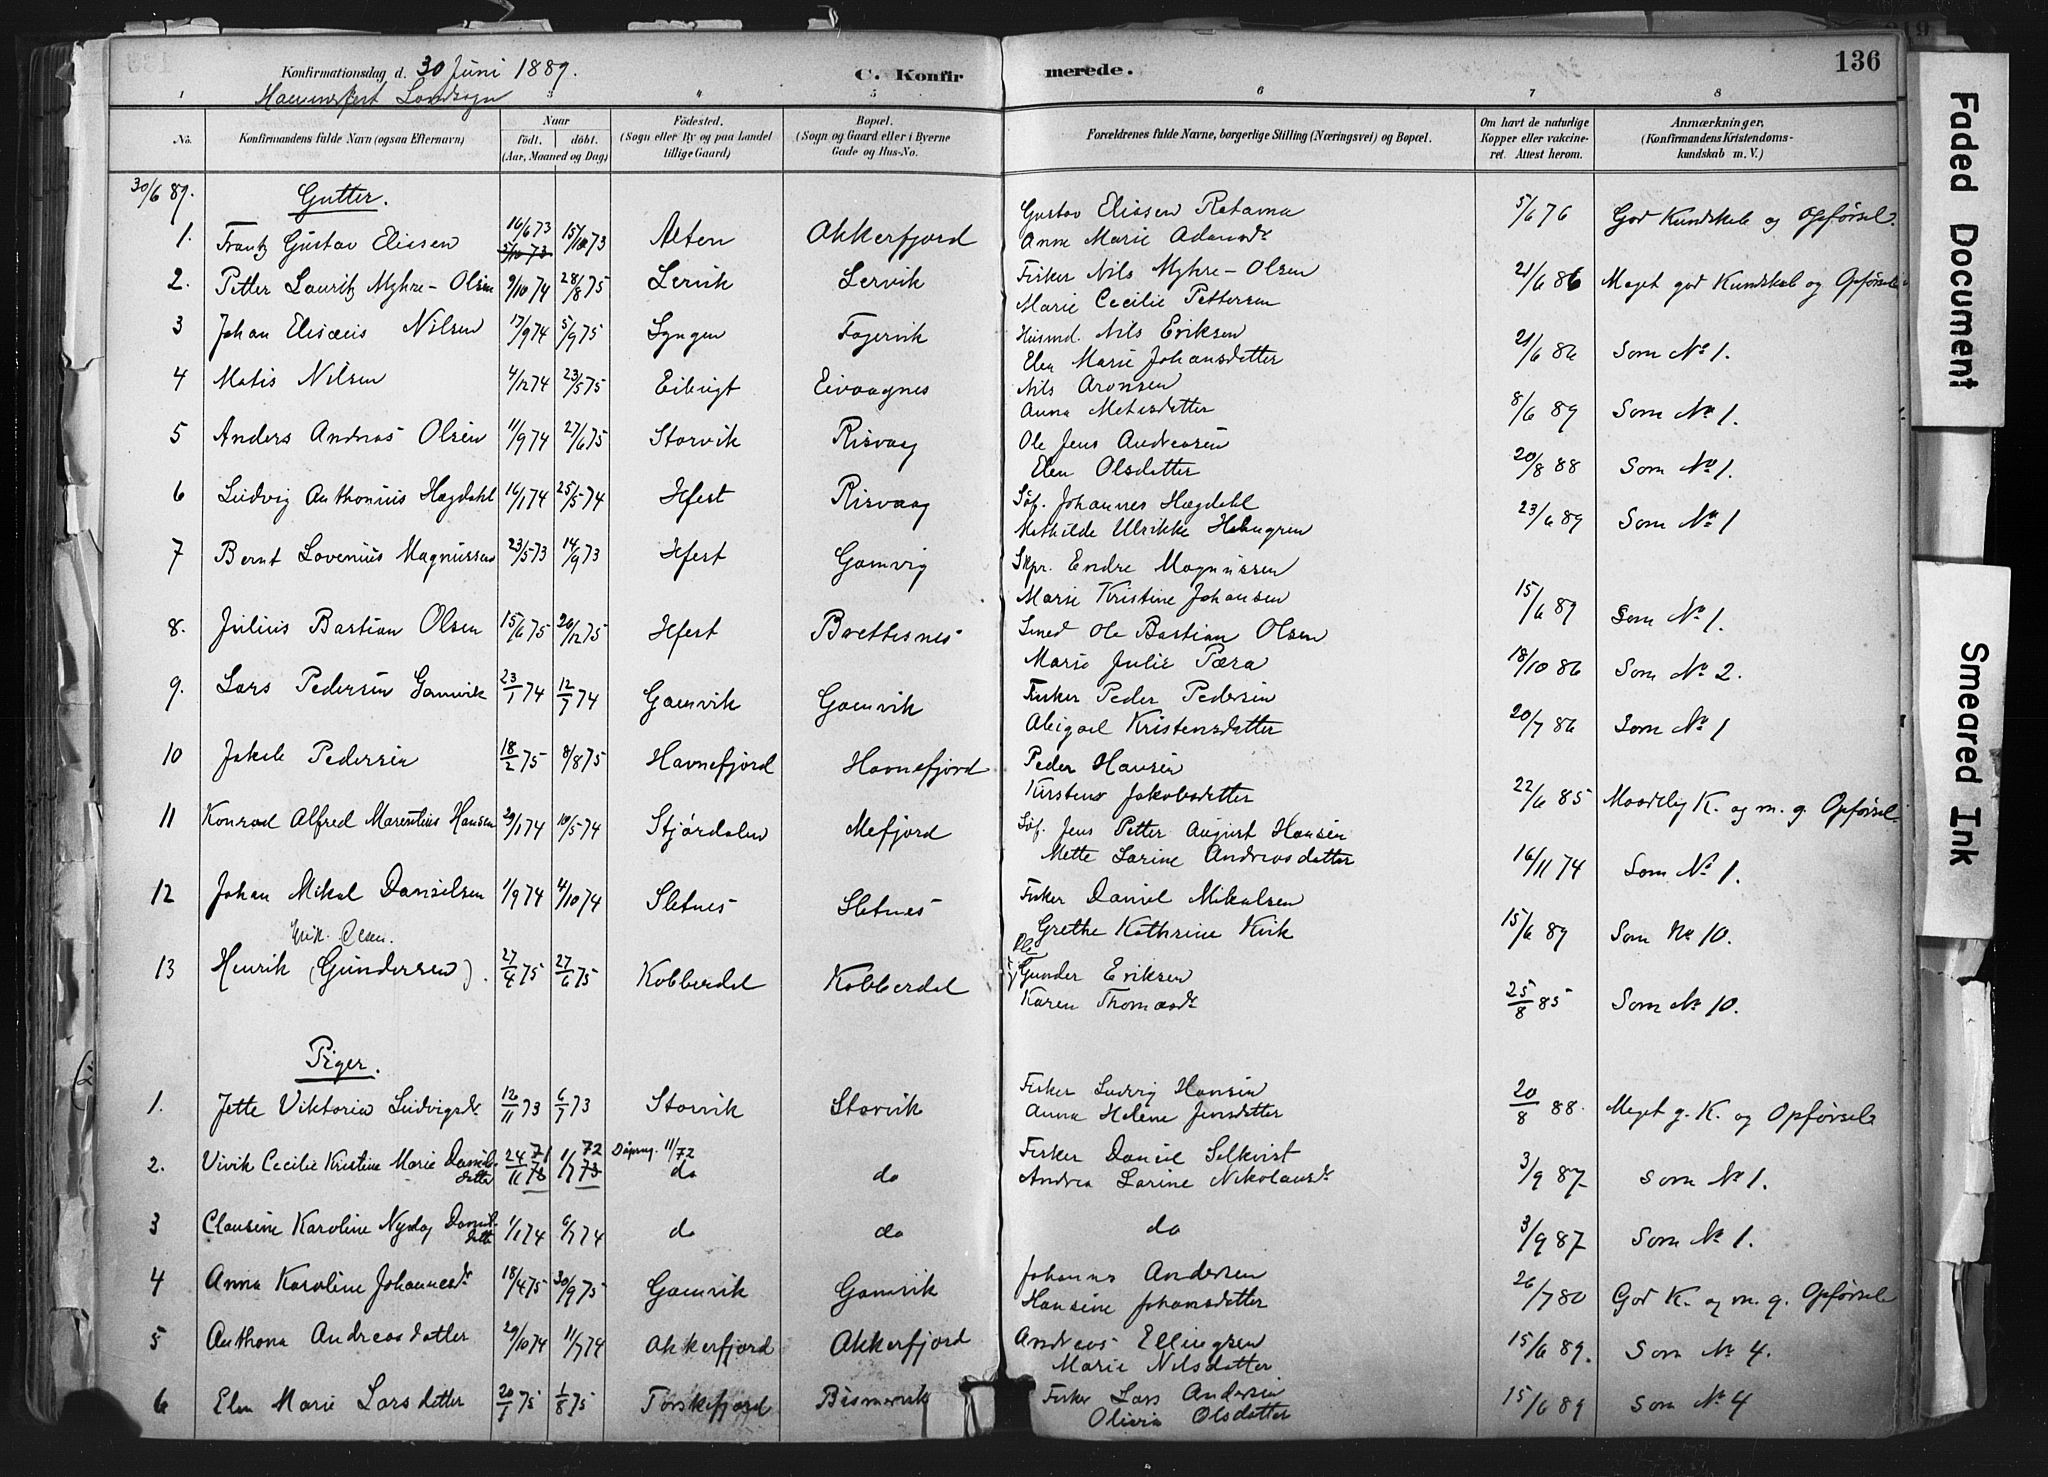 136
Konfirmationsdag d. 30 Juni 1889.
C. Konfirmerede.
Hammerfest Landsogn
1 3 4 5 6 7 8
No. Konfirmandens fulde Navn (ogsaa Efternavn) Naar født. døbt. (Aar, Maaned og Dag) Fødested. (Sogn eller By og paa Landet tillige Gaard) Bopæl. (Sogn og Gaard eller i Byerne Gade og Hus-No. Forældrenes fulde Navne, borgerlige Stilling (Næringsvei) og Bopæl. Om havt de naturlige Kopper eller vakcineret. Attest herom. Anmærkninger, (Konfirmandens Kristendomskundskab m. V.)
30/6 89. Gutter.
1. Frantz Gustav Eliesen 16/6 73 5/10 73 15/10 73 Alten Akkerfjord Gustav Eliesen Ratama 5/6 76 God Kundskab og Opførsel.
Anne Marie Adamsdr
2. Petter Lauritz Myhre-Olsen 9/10 74 28/8 75 Lervik Lervik Fisker Nils Myhre-Olsen 21/6 86 Meget god Kundskab og Opførsel
Marie Cecilie Pettersen
3 Johan Elisæus Nilsen 17/9 74 5/9 75 Lyngen Fagervik Husmd. Nils Eriksen 21/6 86 Som No 1.
Elen Marie Johansdatter
4 Matis Nilsen 4/12 74 23/5 75 Eibugt Eivaagnes Nils Aronsen 8/6 89 Som No 1.
Anna Metesdatter
5 Anders Andreas Olsen 11/9 74 27/6 75 Storvik Risvaag Ole Jens Andreasen 20/8 88 Som No 1.
Elen Olsdatter
6 Ludvig Anthonius Hægdahl 16/1 74 25/5 74 Hfest Risvaag Søf. Johannes Hægdahl 23/6 89 Som No 1
Mathilde Ulrikke Holmgren
7 Bernt Lovenius Magnussen 23/5 73 14/9 73 Hfest Gamvig Skpr. Endre Magnussen 15/6 89 Som No 1.
Marie Kristine Johansen
8. Julius Bastian Olsen 15/6 75 20/12 75 Hfest Brettesnes Smed Ole Bastian Olsen 18/10 86 Som No 2.
Marie Julie Pæra
9. Lars Pedersen Gamvik 23/1 74 12/7 74 Gamvik Gamvik Fisker Peder Pedersen 20/7 86 Som No 1
Abigael Kristensdatter
10 Jakob Pedersen 18/2 75 8/8 75 Havnefjord Havnefjord Peder Hansen 22/6 85 Maadelig K. og m. g. Opførsel.
Kirsten Jakobsdatter
11 Konrad Alfred Marentius Hansen 29/1 74 10/5 74 Stjørdalen Mefjord Søf. Jens Petter August Hansen 16/11 74 Som No 1.
Mette Larine Andreasdatter
12 Johan Mikal Danielsen 1/9 74 4/10 74 Sletnes Sletnes Fisker Daniel Mikalsen 15/6 89 Som No 10.
Grethe Kathrine Kvik
Erik Olsen.
13 Henrik (Gundersen). 27/4 75 27/6 75 Kobberdal Kobberdal Ole Gunder Eriksen 25/8 85 Som No 10.
Karen Thomasdr
Piger.
1. Jette Viktoria Ludvigsdr 12/11 73 6/7 73 Storvik Storvik Fisker Ludvig Hansen 20/8 88. Meget g. K. og Opførsel
Anna Helene Jensdatter
2. Vivik Cecilie Kristine Marie Danielsdatter 24/11 71 73 1/7 72 73 Dåpreg. 11/72 do do Fisker Daniel Selkvist 3/9 87 Som No 1.
Andrea Larine Nikolausdr
3 Clausine Karoline Nydag Danielsdatter 1/1 74 6/7 74 do do do 3/9 87 Som No 1.
4 Anna Karoline Johannesdr 18/4 75 30/9 75 Gamvik Gamvik Johannes Andersen 26/7 80 God K. og m. g. Opførsel
Hansine Johansdatter
5 Anthona Andreasdatter 29/10 74 11/7 74 Akkerfjord Akkerfjord Andreas Ellingsen 15/6 89. Som No 4.
Marie Nilsdatter
6 Elen Marie Larsdatter 20/1 75 1/8 75 Torskefjord Bismervik Fisker Lars Andersen 15/6 89 Som No 4
Olivia Olsdatter
Faded Document
Smeared Ink